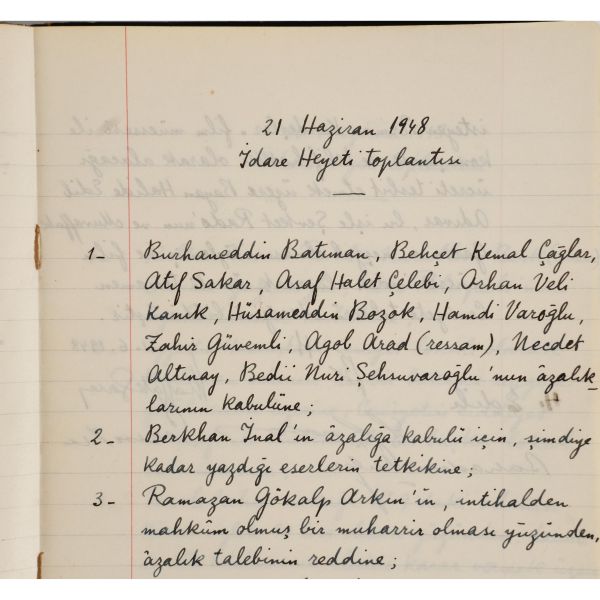 21 Haziran 1948
İdare Heyeti toplantısı
1- Burhaneddin Batıman, Behçet Kemal Çağlar,
Atıf Sakar, Asaf Halet Çelebi, Orhan Veli
Kanık, Hüsameddin Bozok, Hamdi Varoğlu,
Zahir Güvemli, Agob Arad (ressam), Necdet
Altınay, Bedii Nuri Şehsuvaroğlu'nun âzalık-
larının kabulüne;
2- Berkhan İnal'ın âzalığa kabulü için, şimdiye
kadar yazdığı eserlerin tetkikine;
3- Ramazan Gökalp Arkın'ın, intihalden
mahkûm olmuş bir muharrir olması yüzünden,
âzalık talebinin reddine;